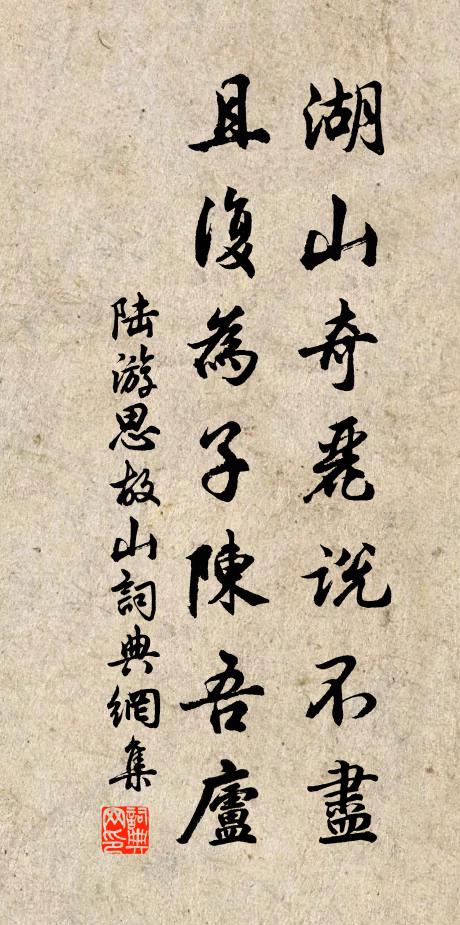 湖山奇麗說不盡
且復為子陳吾廬
陸游思故山詞典網集
詞典網印